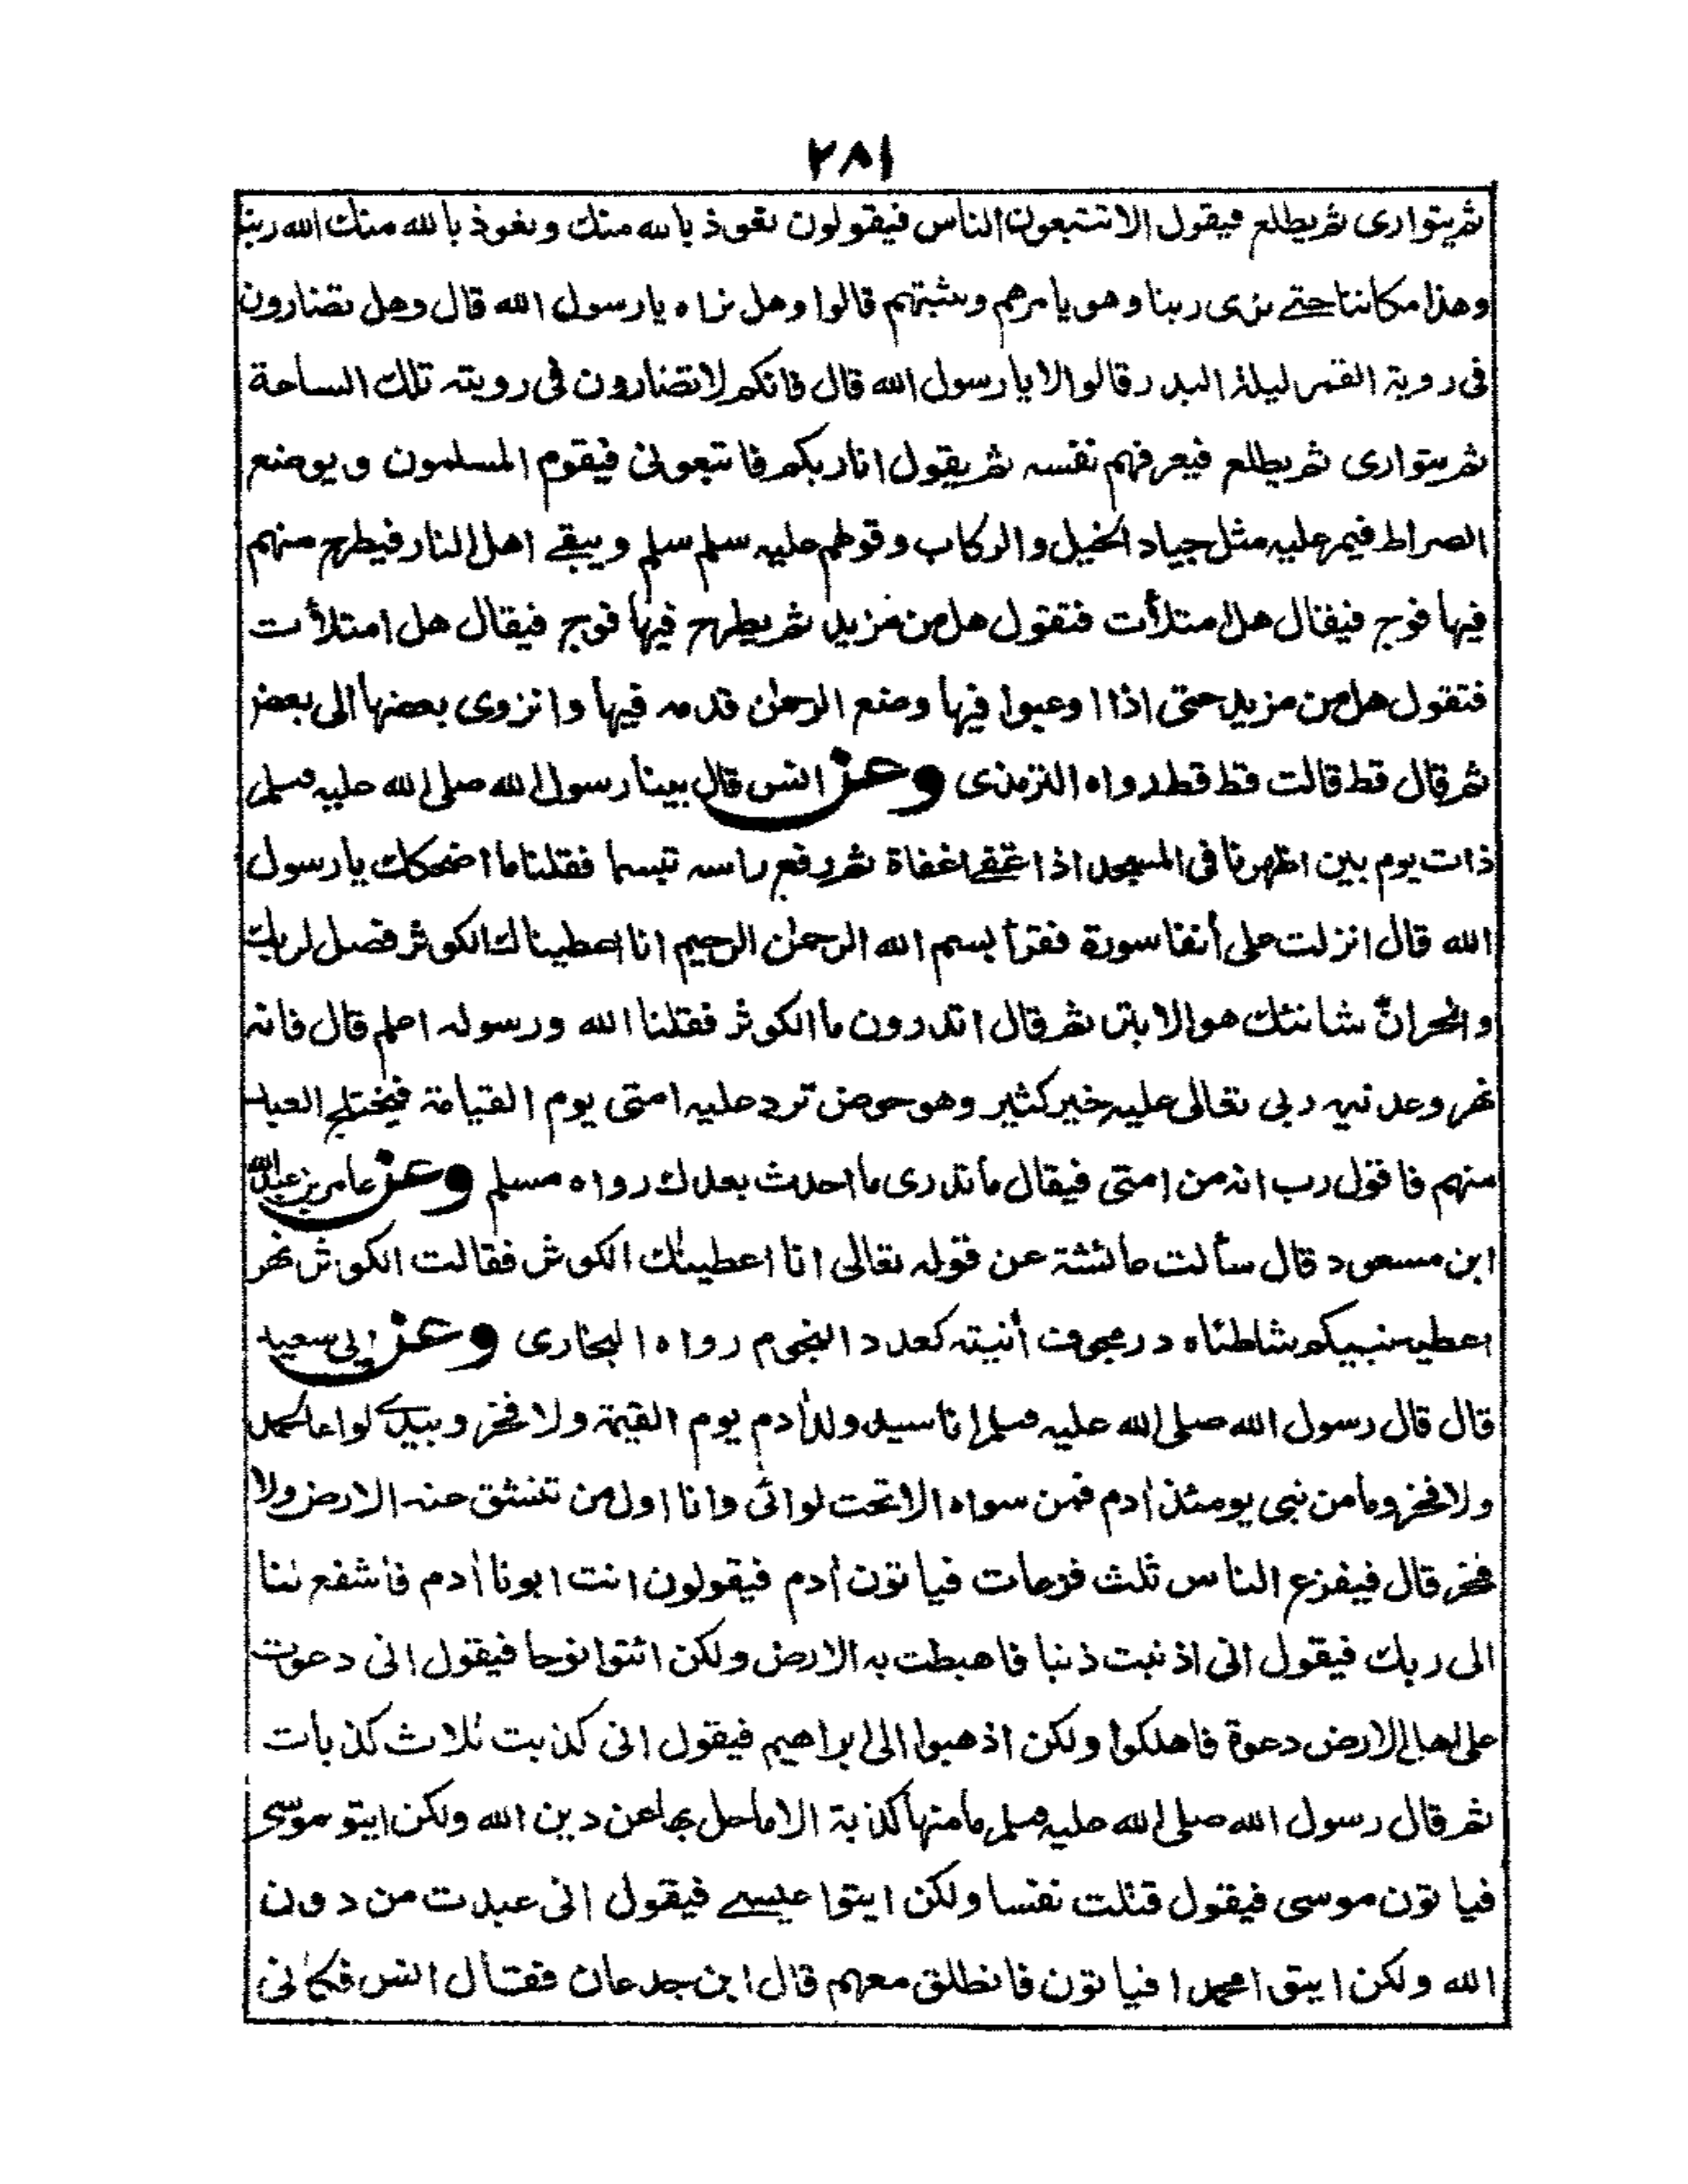 ٢٨١
ثم يتوارى ثم يطلع فيقول الا تتبعون الناس فيقولون نعوذ بالله منك ونعوذ بالله منك الله ربنا
وهذا مكاننا حتے نرى ربنا وهو يامرهم ويثبتهم قالوا وهل نراه يا رسول الله قال وهل تضارون
فى روية القمر ليلة البدر قالوا لا يا رسول الله قال فانكم لا تضارون فى رويته تلك الساعة
ثم يتوارى ثم يطلع فيعرفهم نفسه ثم يقول انا ربكم فاتبعونى فيقوم المسلمون ويوضع
الصراط فيمر عليه مثل جياد الخيل والركاب وقولهم عليه سلم سلم ويبقے اهل النار فيطرح منهم
فيها فوج فيقال هل امتلأت فتقول هل من مزيد ثم يطرح فيها فوج فيقال هل امتلأت
فتقول هل من مزيد حتى اذا اوعبوا فيها وضع الرحمٰن قدمه فيها وانزوى بعضها الى بعض
ثم قال قط قالت قط قط رواه الترمذى وعن انس قال بينا رسول الله صلى الله عليه وسلم
ذات يوم بين اظهرنا فى المسجد اذا غفے اغفاة ثم رفع راسه تبسما فقلنا ما اضحكك يا رسول
الله قال انزلت على أنفا سورة فقرأ بسم الله الرحمٰن الرحيم انا اعطيناك الكوثر فصل لربك
وانحر انّ شانئك هو الابتر ثم قال اتدرون ما الكوثر فقلنا الله ورسوله اعلم قال فانه
نهر وعدنيه ربى تعالى عليه خير كثير وهو حوض ترد عليه امتى يوم القيامة فيختلج العبد
منهم فاقول رب انه من امتى فيقال ما تدرى ما احدث بعدك رواه مسلم وعن عامر بن عبد الله
ابن مسعود قال سألت عائشة عن قوله تعالى انا اعطينٰك الكوثر فقالت الكوثر نهر
اعطيه نبيكم شاطئاه در مجوف أنيته كعدد النجوم رواه البخارى وعن ابى سعيد
قال قال رسول الله صلى الله عليه وسلم انا سيد ولد أدم يوم القيٰمة ولا فخر وبيدے لواء الحمد
ولا فخر وما من نبى يومئذ أدم فمن سواه الا تحت لوائى وانا اول من تنشق عنه الارض ولا
فخر قال فيفزع الناس ثلث فزعات فياتون أدم فيقولون انت ابونا أدم فاشفع لنا
الى ربك فيقول انى اذنبت ذنبا فاهبطت به الارض ولكن ائتوا نوحا فيقول انى دعوت
على اهل الارض دعوة فاهلكوا ولكن اذهبوا الى ابراهيم فيقول انى كذبت ثلاث كذبات
ثم قال رسول الله صلى الله عليه وسلم ما منها كذبة الا ما حل بها عن دين الله ولكن ايتو موسى
فياتون موسى فيقول قتلت نفسا ولكن ايتوا عيسے فيقول انى عبدت من دون
الله ولكن ايتوا محمدا فياتون فانطلق معهم قال ابن جدعان فقال انس فكانى